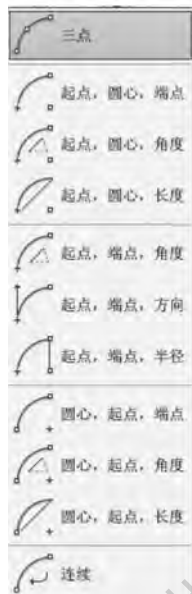 三点
起点，圆心，端点
起点，圆心，角度
起点，圆心，长度
起点，端点，角度
起点，端点，方向
起点，端点，半径
圆心，起点，端点
圆心，起点，角度
圆心，起点，长度
连续